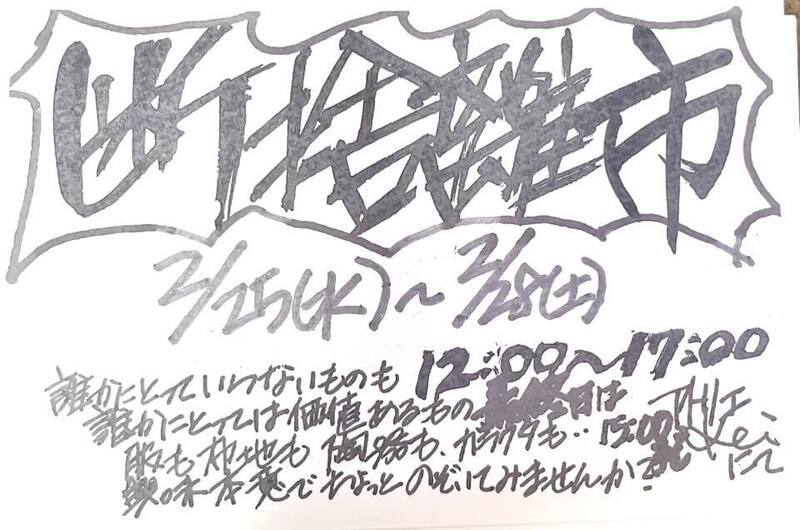 断捨離市
2/25(水)〜2/28(土)
12:00〜17:00
最終日は
15:00まで
誰かにとっていらないものも
誰かにとっては価値あるもの
服も布地も陶器も、ガラクタも‥
興味本意でちょっとのぞいてみませんか?
アトリエ
Kei
にて